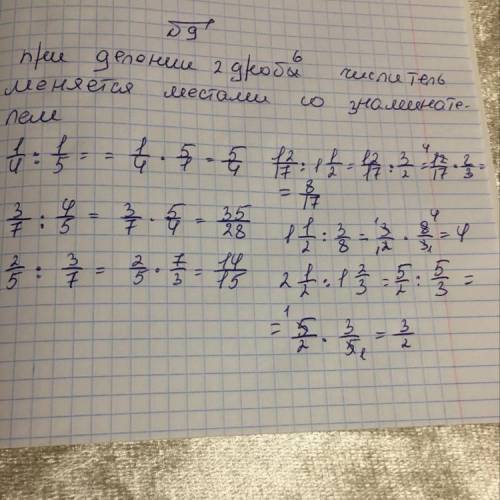 при делении 2 дробь числитель
меняется местами со знаминате-
лем
1/4 : 1/5 = = 1/4 · 5/1 = 5/4
3/7 : 4/5 = 3/7 · 5/4 = 35/28
2/5 : 3/7 = 2/5 · 7/3 = 14/15
12/17 : 1 1/2 = 12/17 : 3/2 = 12/17 · 2/3 =
= 8/17
1 1/2 : 3/8 = 3/2 · 8/3 = 4
2 1/2 : 1 2/3 = 5/2 : 5/3 =
= 5/2 · 3/5 = 3/2